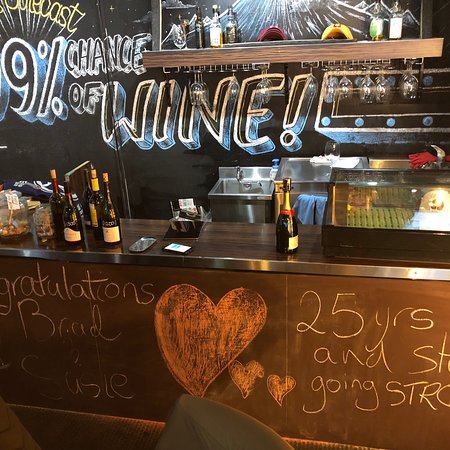 9% CHANCE
OF WINE!
gratulations
Brad
&
Susie
25 yrs
and st
going STRO